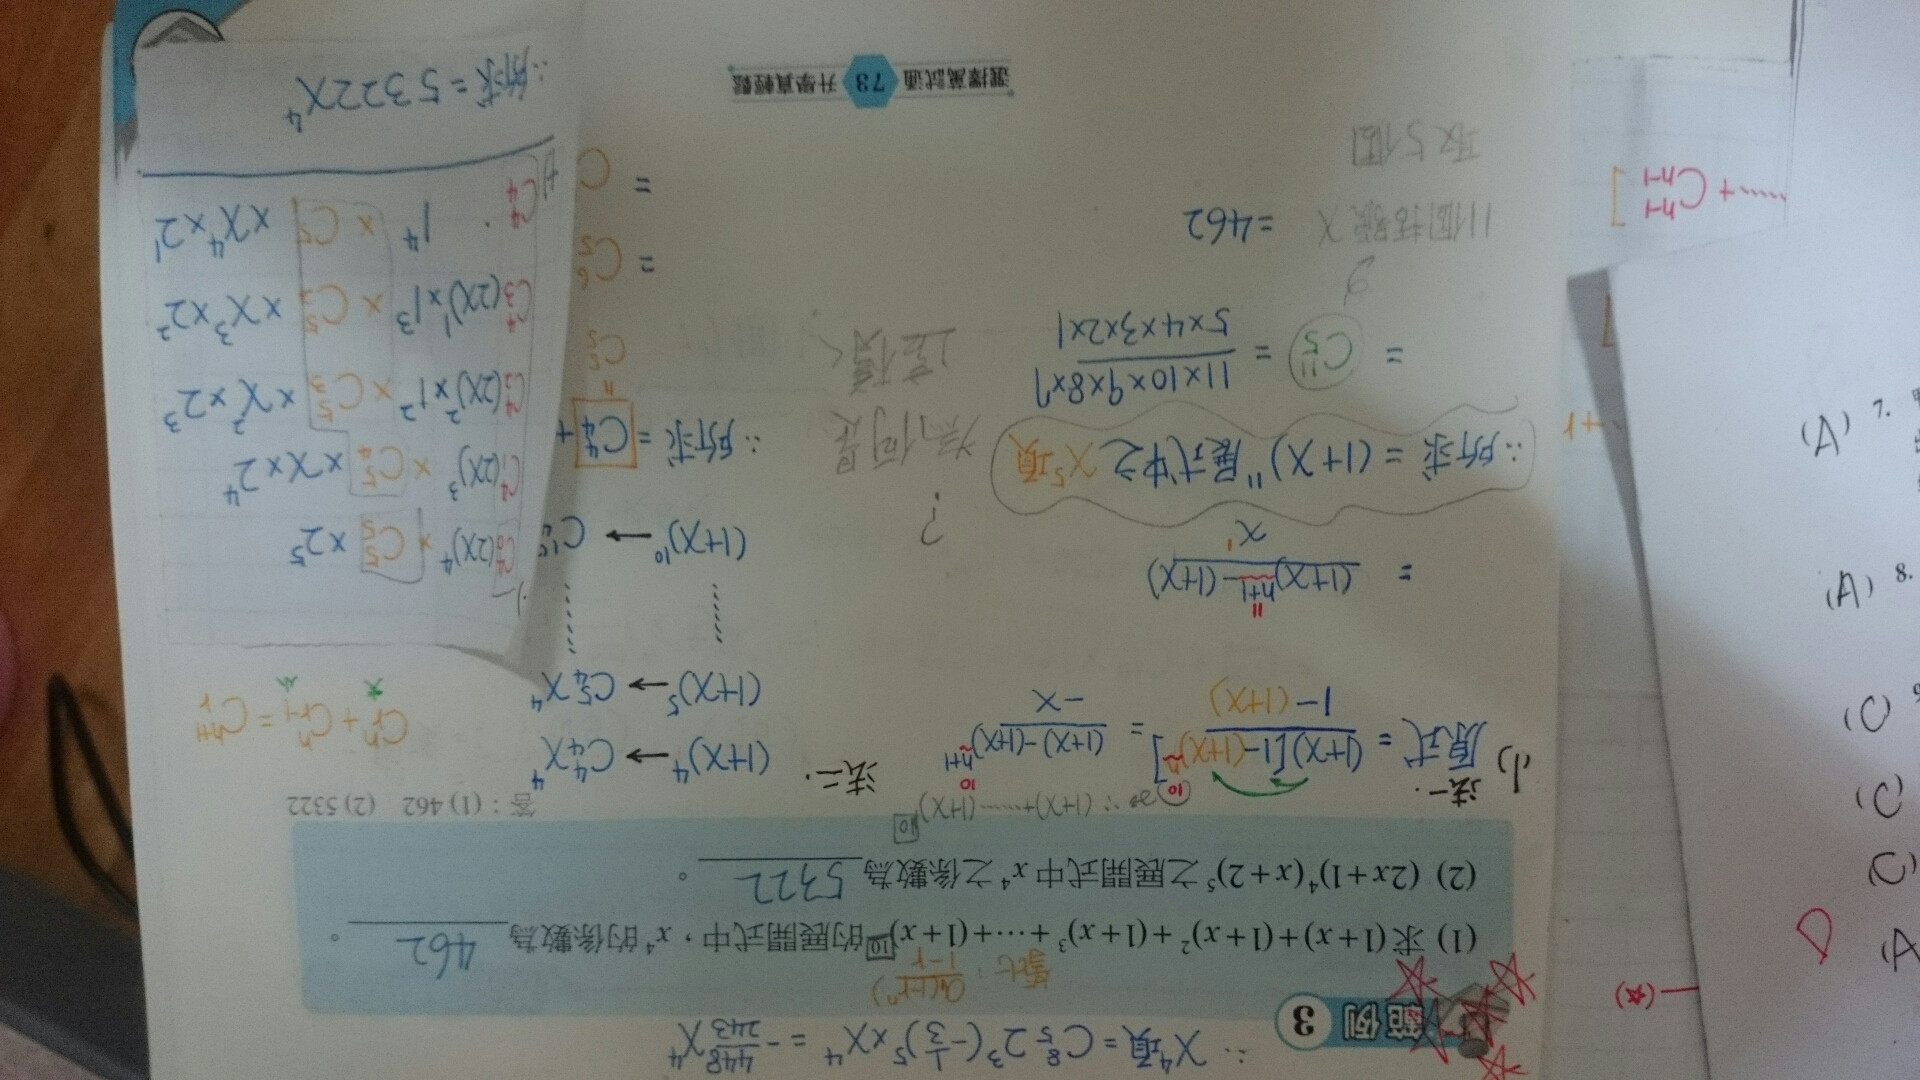 ∴ X⁴項 = C⁸₅ 2³(-1/3)⁵ × X⁴ = -448/243 X⁴
範例 3
等比: a(1-rⁿ)/1-r
(1) 求 (1+x)+(1+x)²+(1+x)³+⋯+(1+x)¹⁰的展開式中,x⁴的係數為 462 。
(2) (2x+1)⁴(x+2)⁵之展開式中x⁴之係數為 5322 。
答:(1) 462 (2) 5322
(1+X)+……(1+X)¹⁰
(1) 法一.
原式 = (1+X)[1-(1+X)ⁿ]/1-(1+X) = (1+X)-(1+X)ⁿ⁺¹/-X
10
10
= (1+X)ⁿ⁺¹-(1+X)/X
11
∴所求 = (1+X)¹¹展式中之X⁵項
= C¹¹₅ = 11×10×9×8×7/5×4×3×2×1
= 462
11個括號X
取5個
?
為何是
這樣
法二.
(1+X)⁴ → C⁴₄X⁴
(1+X)⁵ → C⁵₄X⁴
(1+X)¹⁰ →
∴所求 = C⁴₄ +
C⁵₅
= C⁶₅
= C
Cⁿᵣ + Cⁿᵣ₋₁ = Cⁿ⁺¹ᵣ
C⁴₀(2X)⁴ × C⁵₅ × 2⁵
C⁴₁(2X)³ × C⁵₄ × X × 2⁴
C⁴₂(2X)² × 1² × C⁵₃ × X² × 2³
C⁴₃(2X)¹ × 1³ × C⁵₂ × X³ × 2²
C⁴₄ · 1⁴ × C⁵₁ × X⁴ × 2¹
∴所求 = 5322X⁴
選擇萬試通 73 升學真輕鬆
……+Cⁿ⁻¹ₙ₋₁ ]
(A) 7.
(A) 8.
(C)
(C)
(C)
D
(A
(☆)